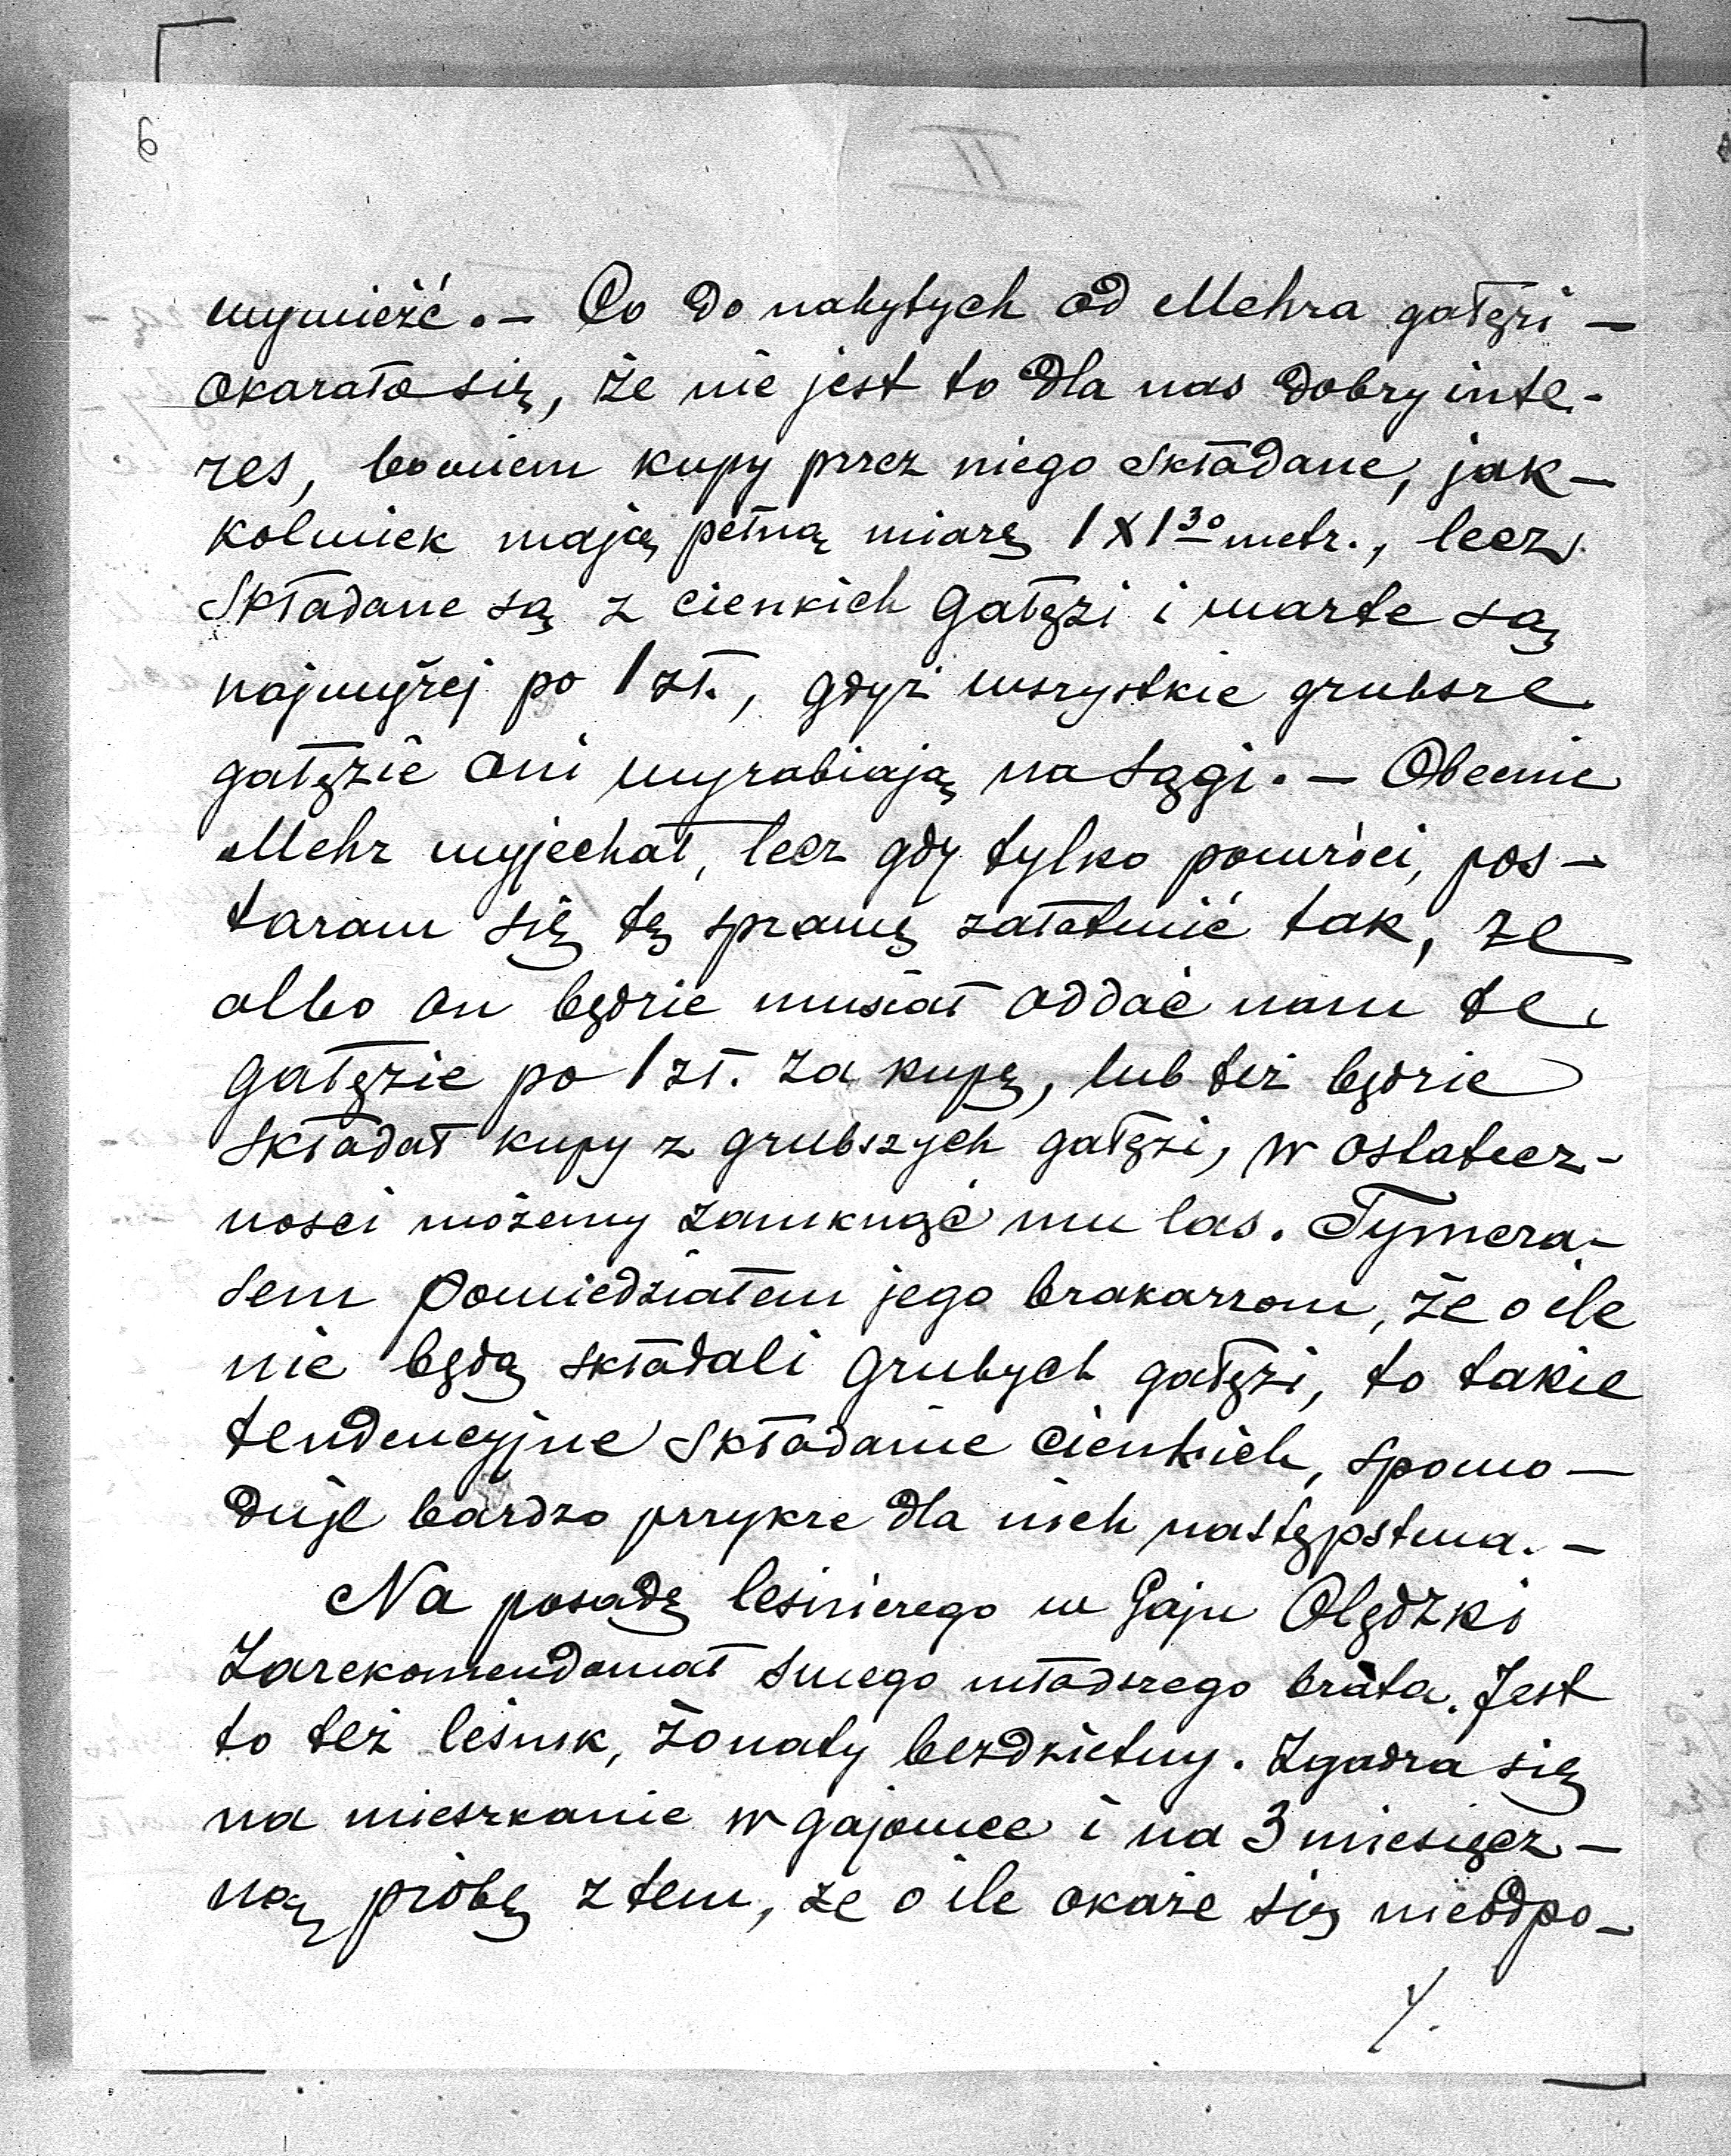 6
II
wywieźć. — Co do nabytych od Mehra gałęzi —
okazało się, że nie jest to dla nas dobry inte-
res, bowiem kupy przez niego składane, jak-
kolwiek mają pełną miarę 1 X 1 30 metr., lecz
składane są z cienkich gałęzi i warte są
najwyżej po 1 zł., gdyż wszystkie grubsze
gałęzie oni wyrabiają na sągi. — Obecnie
Mehr wyjechał, lecz gdy tylko powróci, pos-
taram się tę sprawę załatwić tak, że
albo on będzie musiał oddać nam te
gałęzie po 1 zł. za kupę, lub też będzie
składał kupy z grubszych gałęzi, w ostatecz-
ności możemy zamknąć mu las. Tymcza-
sem powiedziałem jego brakarzom, że o ile
nie będą składali grubych gałęzi, to takie
tendencyjne składanie cienkich, spowo-
duje bardzo przykre dla nich następstwa. —
Na posadę leśniczego w Gaju Olędzki
zarekomendował swego młodszego brata. Jest
to też leśnik, żonaty bezdzietny. Zgadza się
na mieszkanie w gajowce i na 3 miesięcz-
ną próbę z tem, że o ile okaże się nieodpo-